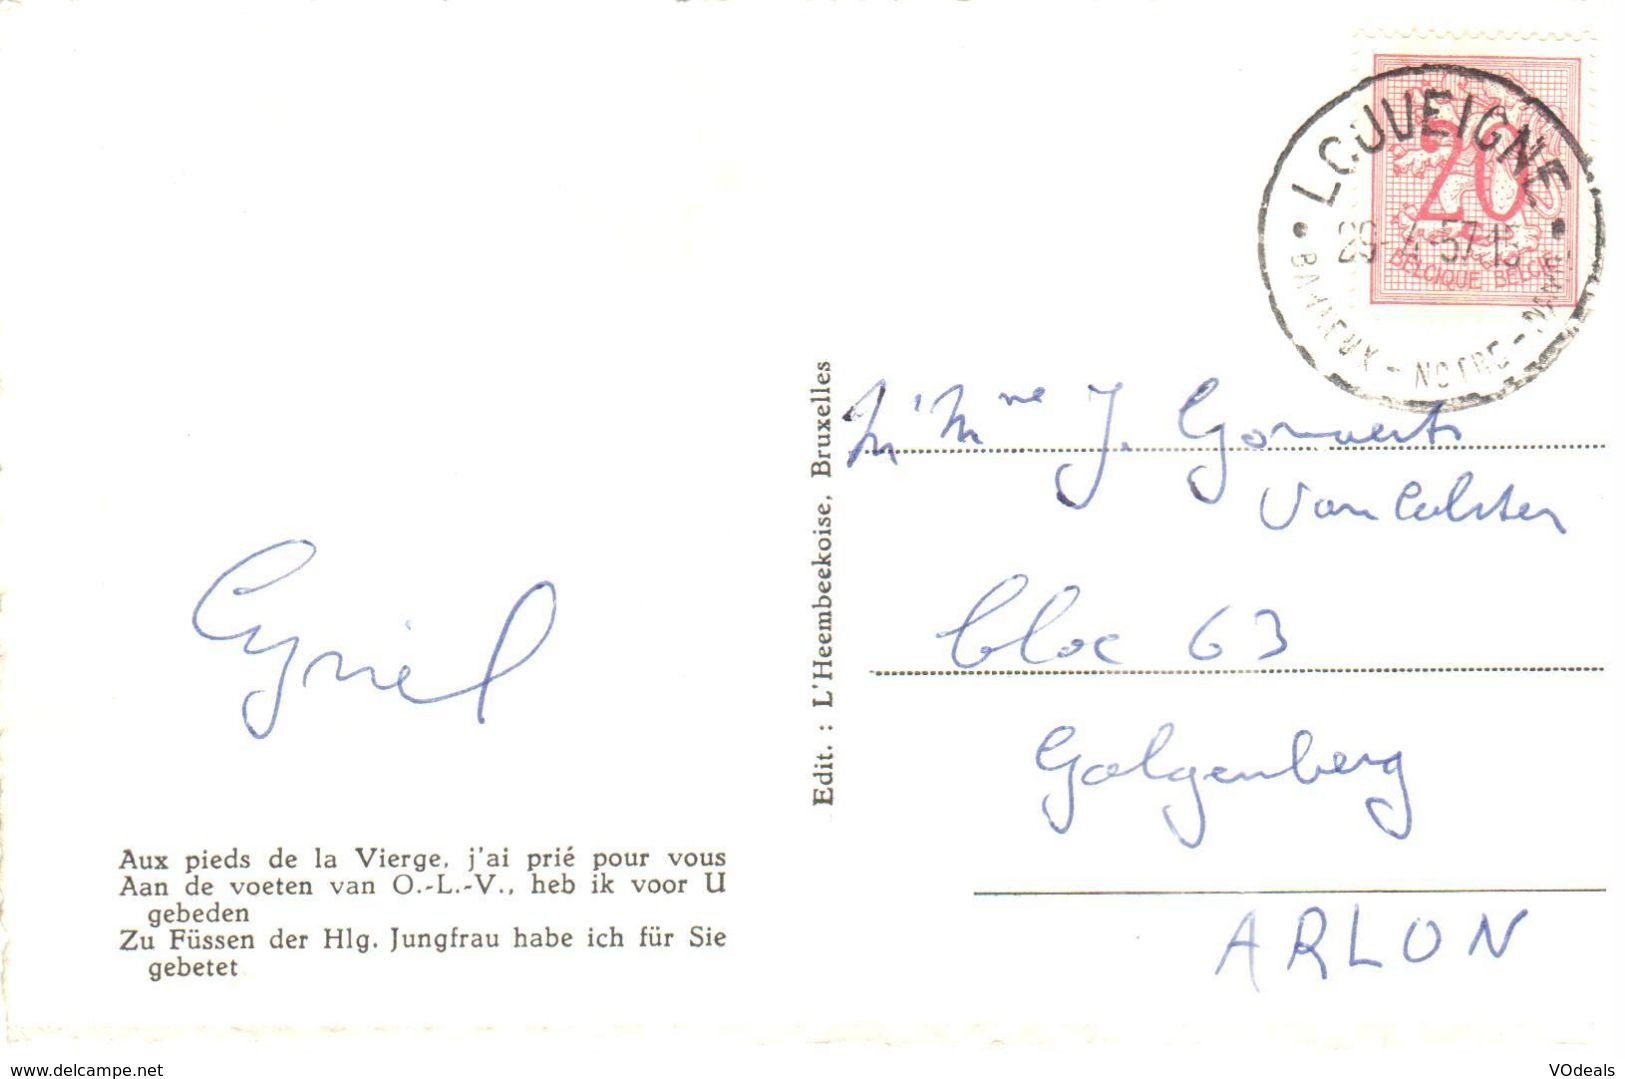 LOUVEIGNE
20
29-4-57 13
BELGIQUE BELGIE
BANNEUX - NOTRE - DAME
Edit. : L'Heembeekoise, Bruxelles
M'Mme J. Gonvaerts
Van Calster
bloc 63
Galgenberg
ARLON
Cyriel
Aux pieds de la Vierge, j'ai prié pour vous
Aan de voeten van O.-L.-V., heb ik voor U
gebeden
Zu Füssen der Hlg. Jungfrau habe ich für Sie
gebetet
www.delcampe.net
VOdeals